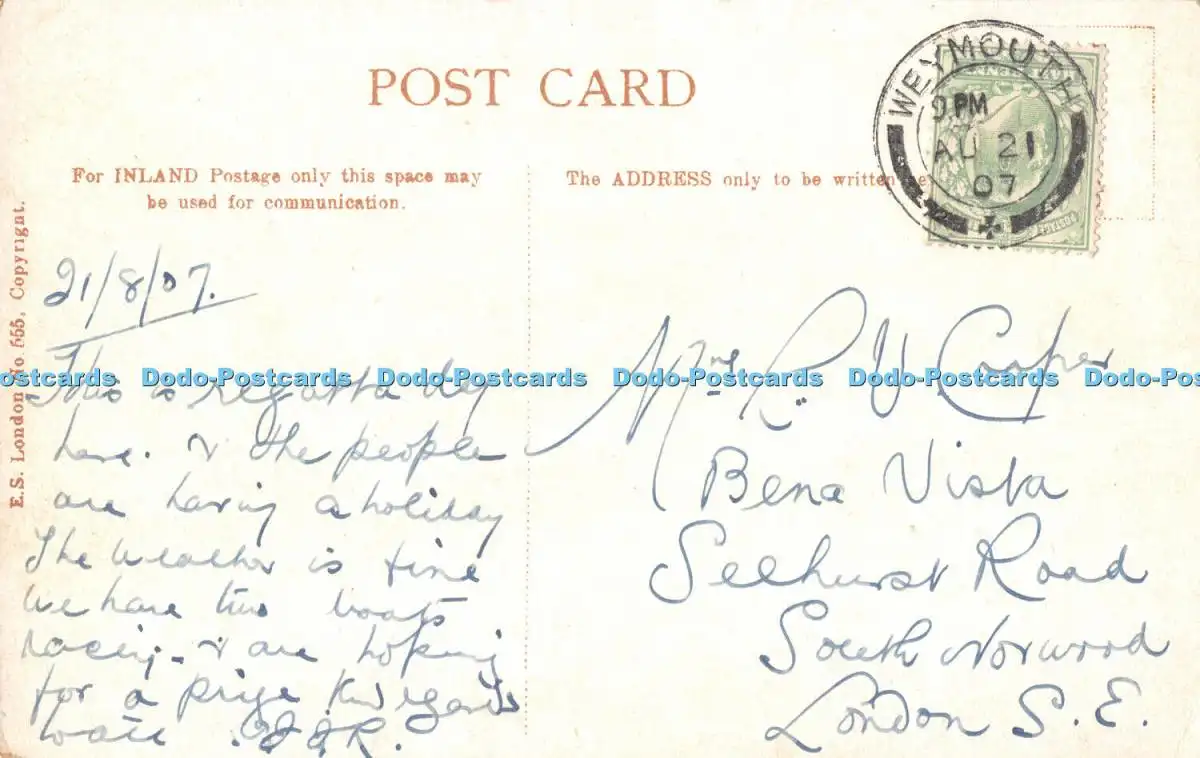 POST CARD
WEYMOUTH
9 PM
AU 21
07
For INLAND Postage only this space may
be used for communication.
The ADDRESS only to be written
E.S. London No 555, Copyright.
21/8/07.
This is regatta day
here. & the people
are having a holiday
The weather is fine
We have two boats
racing. & are hoping
for a prize Kind regards
to all
Dodo-Postcards Dodo-Postcards Dodo-Postcards Dodo-Postcards Dodo-Postcards Dodo-Pos
Cooper
Bena Vista
Selhurst Road
South Norwood
London S.E.